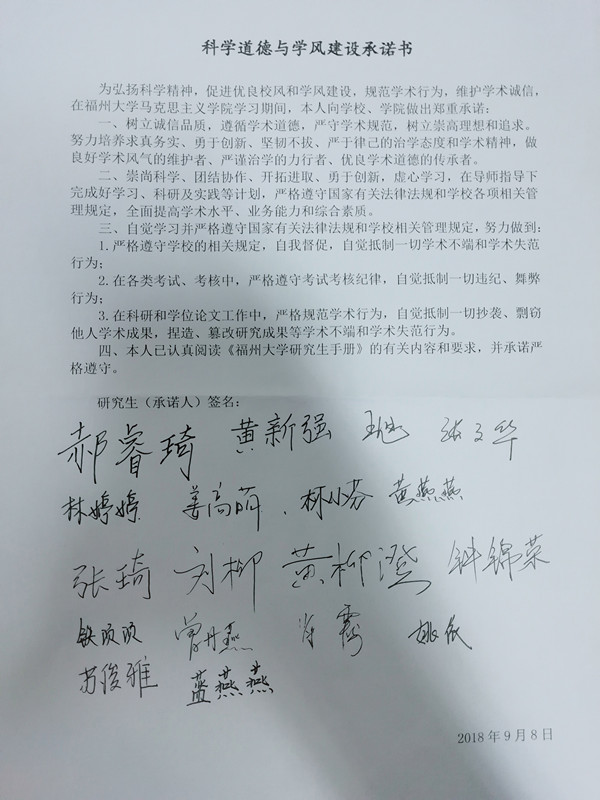 科学道德与学风建设承诺书
为弘扬科学精神，促进优良校风和学风建设，规范学术行为，维护学术诚信，
在福州大学马克思主义学院学习期间，本人向学校、学院做出郑重承诺：
一、树立诚信品质，遵循学术道德，严守学术规范，树立崇高理想和追求。
努力培养求真务实、勇于创新、坚韧不拔、严于律己的治学态度和学术精神，做
良好学术风气的维护者、严谨治学的力行者、优良学术道德的传承者。
二、崇尚科学、团结协作、开拓进取、勇于创新，虚心学习，在导师指导下
完成好学习、科研及实践等计划，严格遵守国家有关法律法规和学校各项相关管
理规定，全面提高学术水平、业务能力和综合素质。
三、自觉学习并严格遵守国家有关法律法规和学校相关管理规定，努力做到：
1.严格遵守学校的相关规定，自我督促，自觉抵制一切学术不端和学术失范
行为；
2.在各类考试、考核中，严格遵守考试考核纪律，自觉抵制一切违纪、舞弊
行为；
3.在科研和学位论文工作中，严格规范学术行为，自觉抵制一切抄袭、剽窃
他人学术成果，捏造、篡改研究成果等学术不端和学术失范行为。
四、本人已认真阅读《福州大学研究生手册》的有关内容和要求，并承诺严
格遵守。
研究生（承诺人）签名：
郝睿琦 黄新强
林婷婷 姜高萌 林小芬 黄燕燕
张琦 刘柳 黄柳澄 钟锦荣
曾丹燕 肖霞
苏俊雅 蓝燕燕
2018年9月8日